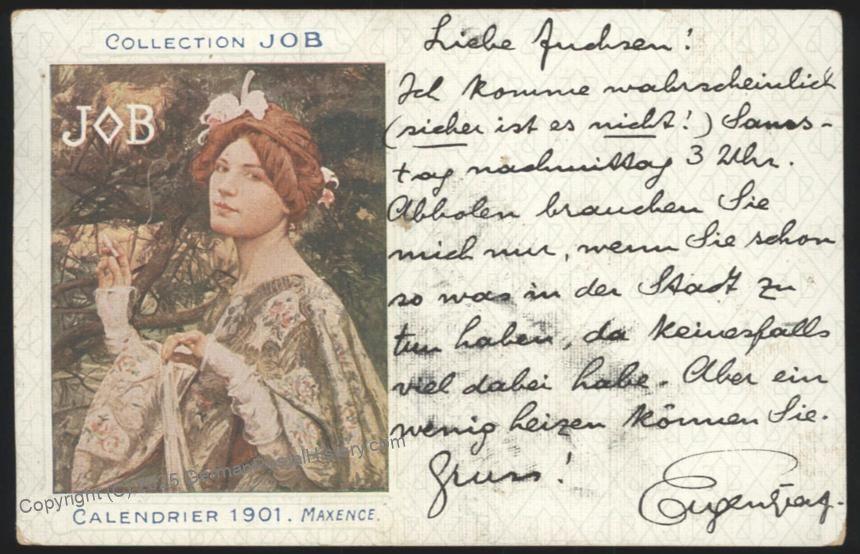 COLLECTION JOB
JOB
CALENDRIER 1901. MAXENCE.
Liebe Fuchsen!
Ich komme wahrscheinlich
(sicher ist es nicht!) Sams-
tag nachmittag 3 Uhr.
Abholen brauchen Sie
mich nur, wenn Sie schon
so was in der Stadt zu
tun haben, da keinesfalls
viel dabei habe. Aber ein
wenig heizen können Sie.
Gruss!
Copyright (C) GermanPostalHistory.com